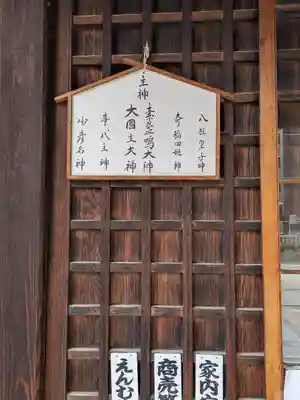 主神
八柱皇子神
奇稲田姫神
素盞嗚大神
大國主大神
事代主神
少彦名神
家内
商売
えんむ